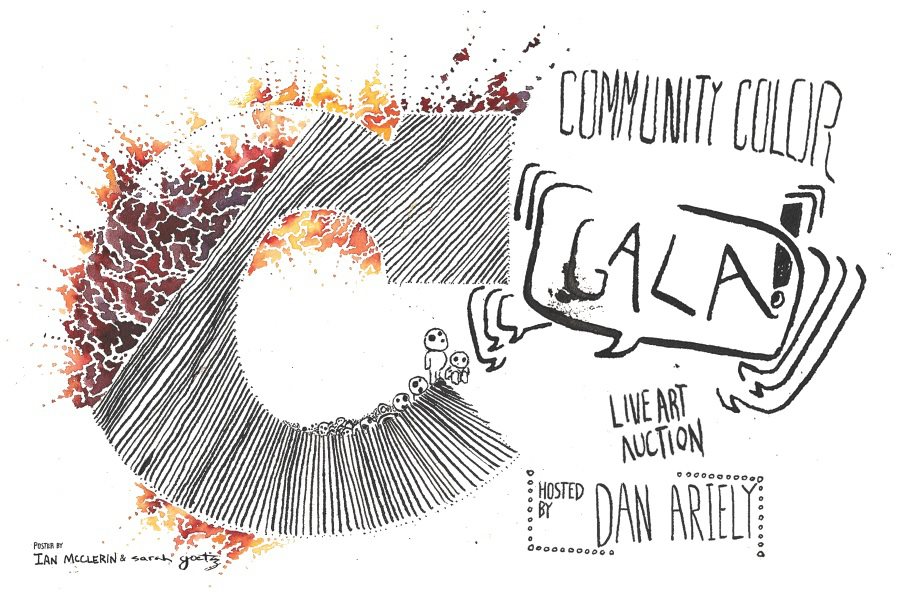 COMMUNITY COLOR
GALA!
LIVE ART
AUCTION
HOSTED
BY
DAN ARIELY
POSTER BY
IAN MCCLERIN & sarah goetz